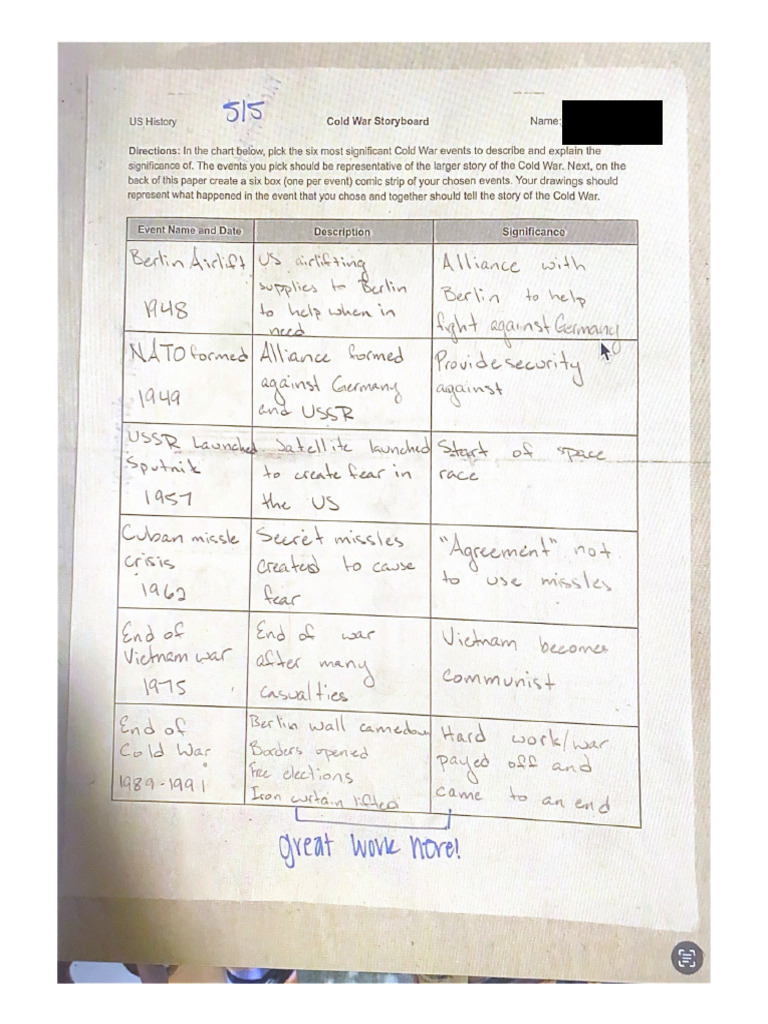 5/5
US History
Cold War Storyboard
Name:
Directions: In the chart below, pick the six most significant Cold War events to describe and explain the
significance of. The events you pick should be representative of the larger story of the Cold War. Next, on the
back of this paper create a six box (one per event) comic strip of your chosen events. Your drawings should
represent what happened in the event that you chose and together should tell the story of the Cold War.
Event Name and Date
Description
Significance
Berlin Airlift
1948
US airlifting
supplies to Berlin
to help when in
need
Alliance with
Berlin to help
fight against Germany
NATO formed
1949
Alliance formed
against Germany
and USSR
Provide security
against
USSR Launched
Sputnik
1957
Satellite launched
to create fear in
the US
Start of space
race
Cuban missle
crisis
1962
Secret missles
created to cause
fear
"Agreement" not
to use missles
End of
Vietnam war
1975
End of war
after many
casualties
Vietnam becomes
communist
End of
Cold War
1989-1991
Berlin wall came down
Borders opened
Free elections
Iron curtain lifted
Hard work/war
payed off and
came to an end
great work here!